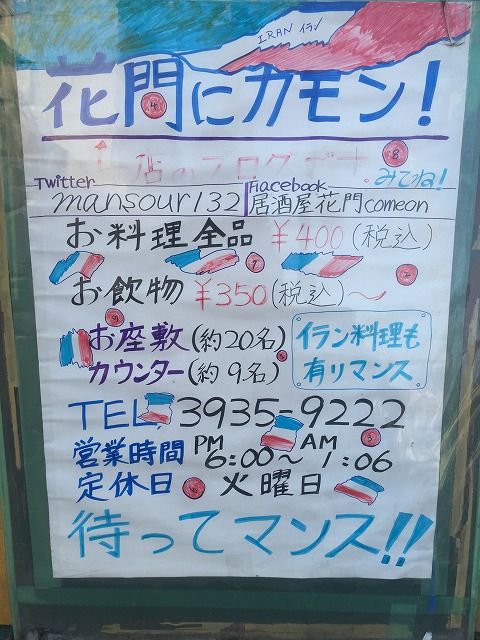 IRAN イラン
花門にカモン!
店のブログです。みてね!
Twitter
mansour132
Facebook
居酒屋花門comeon
お料理全品 ¥400(税込)
お飲物 ¥350(税込)〜
お座敷(約20名)
カウンター(約9名)
イラン料理も
有リマンス
TEL, 3935-9222
営業時間 PM 6:00〜AM 1:06
定休日 火曜日
待ってマンス!!